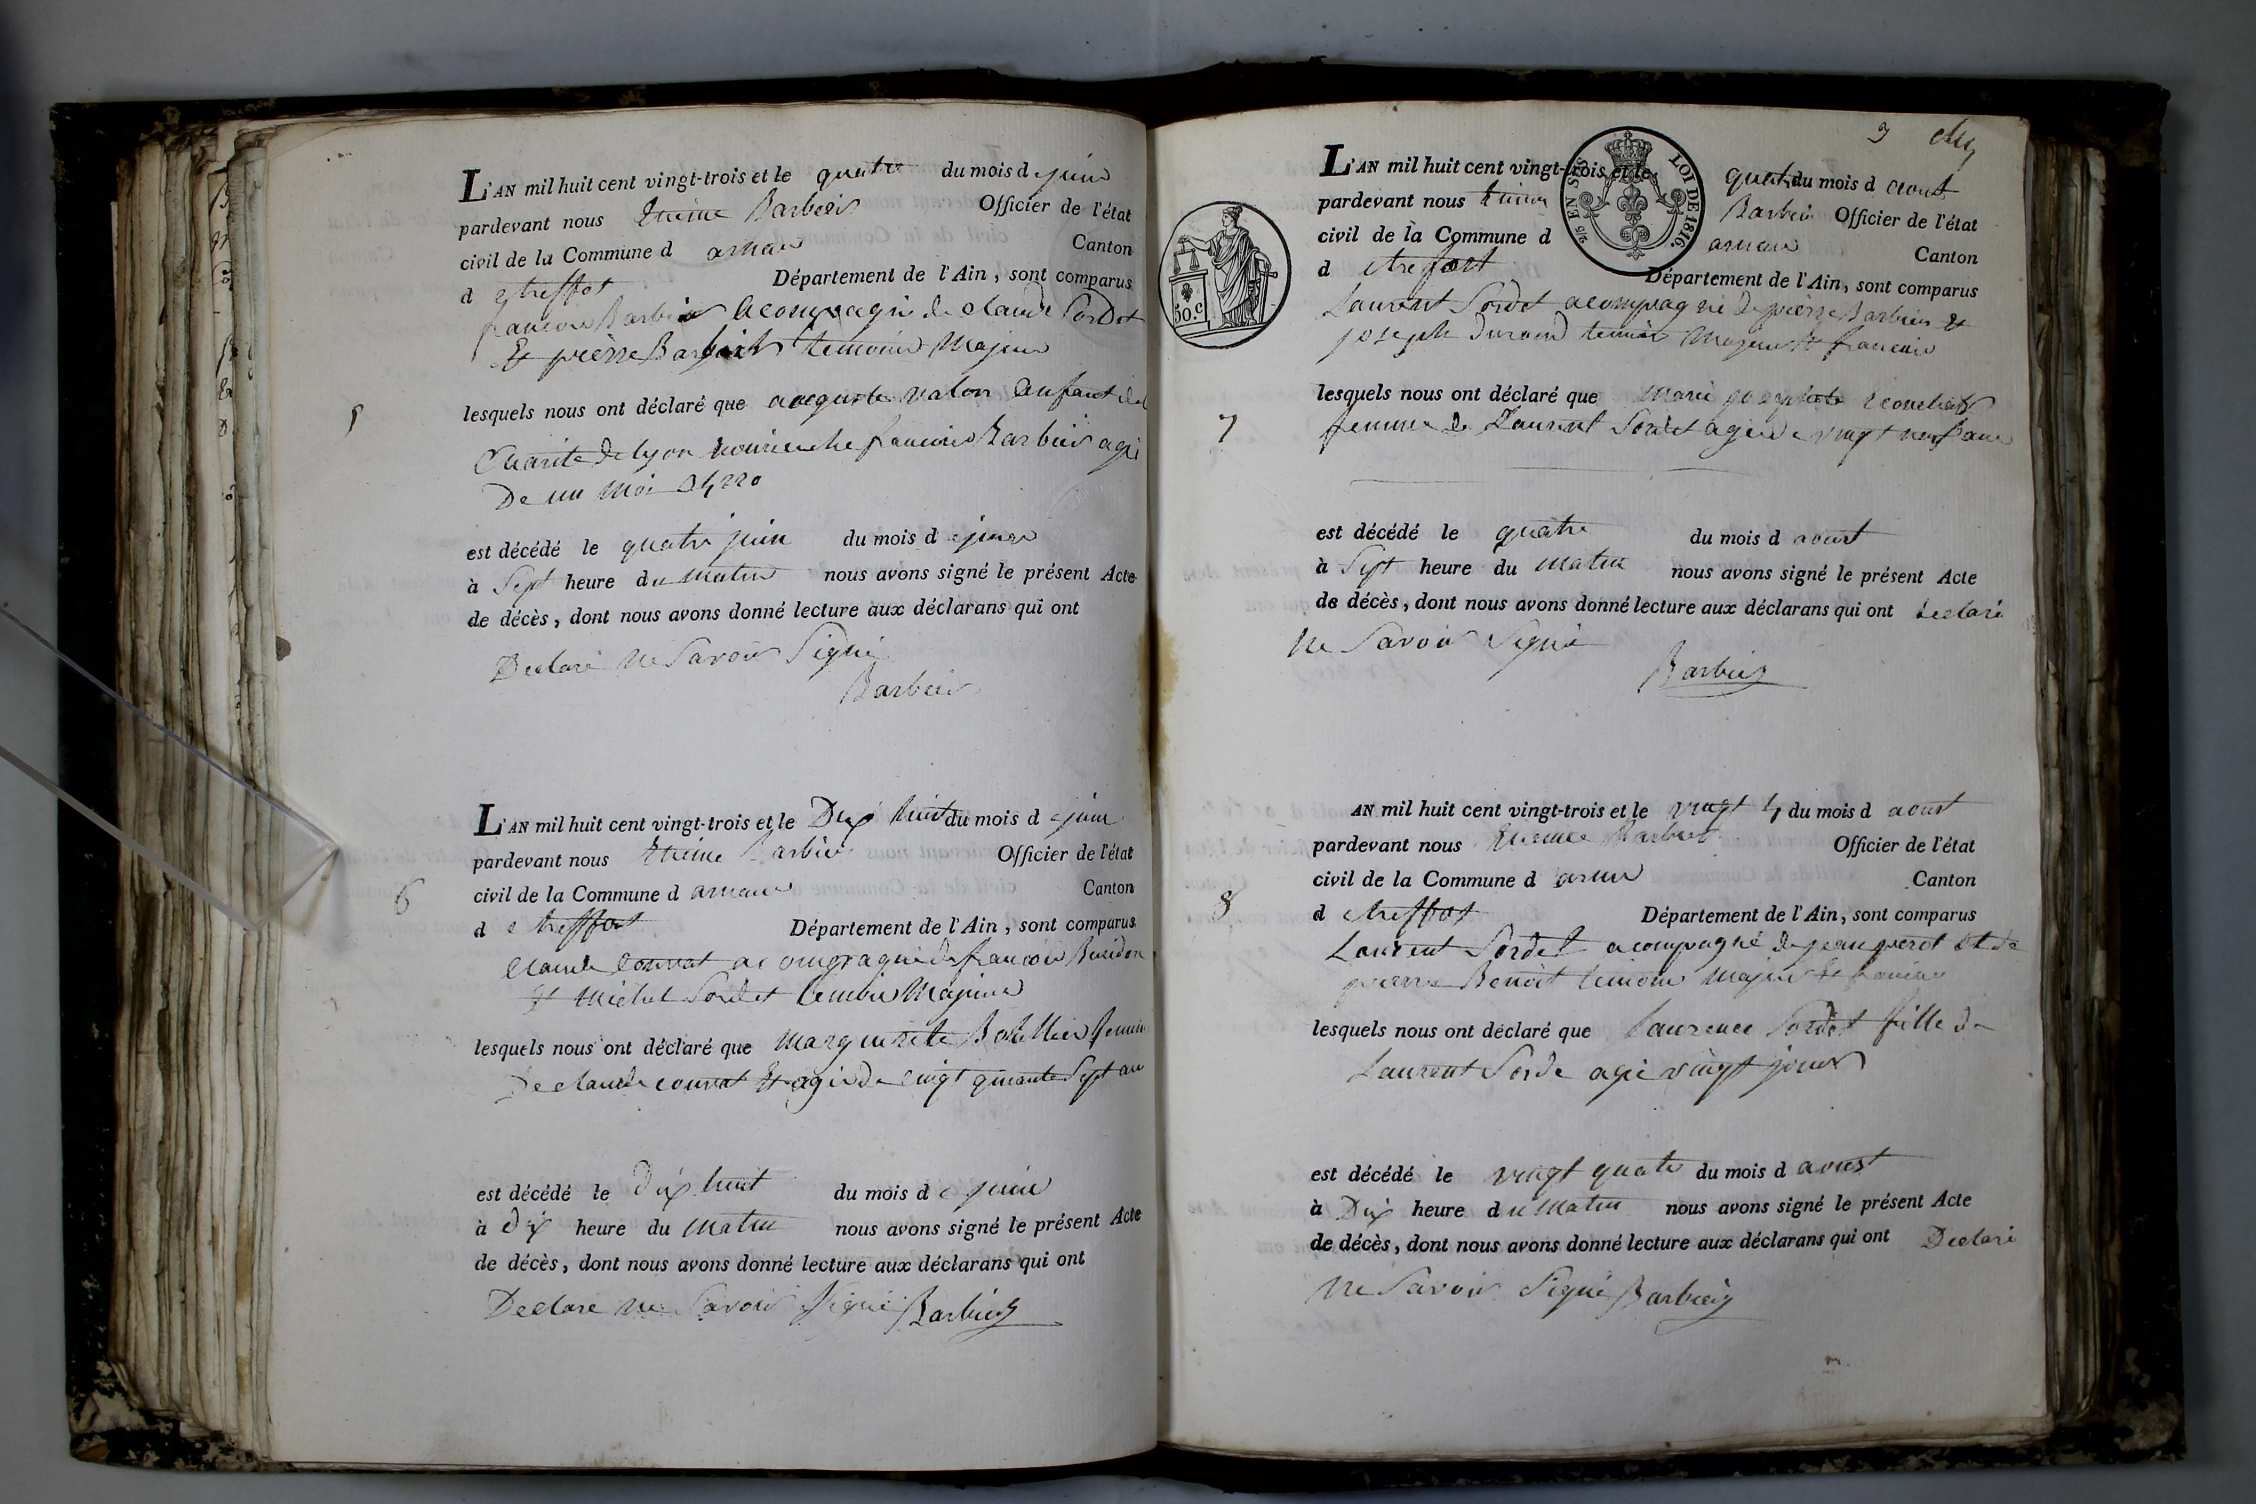 5
L'AN mil huit cent vingt-trois et le quatre du mois d e juin
pardevant nous Etienne Barbier Officier de l'état
civil de la Commune d arnan Canton
d e treffort Département de l'Ain, sont comparus
francois Barbier Acompagné de claude Sordet
Et pierre Barbier temoins Majeur
lesquels nous ont déclaré que auguste valon Enfant de la
Charité de lyon chez francois Barbier agé
De un Moi
est décédé le quatre juin du mois d e juin
à Sept heure du Matin nous avons signé le présent Acte
de décès, dont nous avons donné lecture aux déclarans qui ont
Declaré Ne Savoir Signé
Barbier
6
L'AN mil huit cent vingt-trois et le Dix huit du mois d e juin
pardevant nous Etienne Barbier Officier de l'état
civil de la Commune d arnan Canton
d e treffort Département de l'Ain, sont comparus
claude Convat acompagné de francois
Et Michel Sordet temoin Majeur
lesquels nous ont déclaré que Marguerite femme
De claude convat Et agée de cinquante Sept an
est décédé le dix huit du mois d e juin
à dix heure du Matin nous avons signé le présent Acte
de décès, dont nous avons donné lecture aux déclarans qui ont
Declaré Ne Savoir Signé Barbier
3
EN SUS
LOI DE 1816.
50.c
7
L'AN mil huit cent vingt-trois et le quatre du mois d aout
pardevant nous Etienne Barbier Officier de l'état
civil de la Commune d arnan Canton
d e trefort Département de l'Ain, sont comparus
Laurent Sordet acompagné de pierre Barbier Et
joseph Durand temoin Majeur Et francais
lesquels nous ont déclaré que Marie
femme de Laurent Sordet agée de vingt neuf ans
est décédé le quatre du mois d aoust
à Sept heure du Matin nous avons signé le présent Acte
de décès, dont nous avons donné lecture aux déclarans qui ont declaré
Ne Savoir Signé
Barbier
8
AN mil huit cent vingt-trois et le vingt 4 du mois d aoust
pardevant nous Etienne Barbier Officier de l'état
civil de la Commune d arnan Canton
d e treffort Département de l'Ain, sont comparus
Laurent Sordet acompagné de jean perot Et de
pierre Benoit temoin Majeur Et francais
lesquels nous ont déclaré que Laurence Sordet fille de
Laurent Sorde agée vingt jours
est décédé le vingt quatre du mois d aoust
à Dix heure du Matin nous avons signé le présent Acte
de décès, dont nous avons donné lecture aux déclarans qui ont Declaré
Ne Savoir Signé Barbier